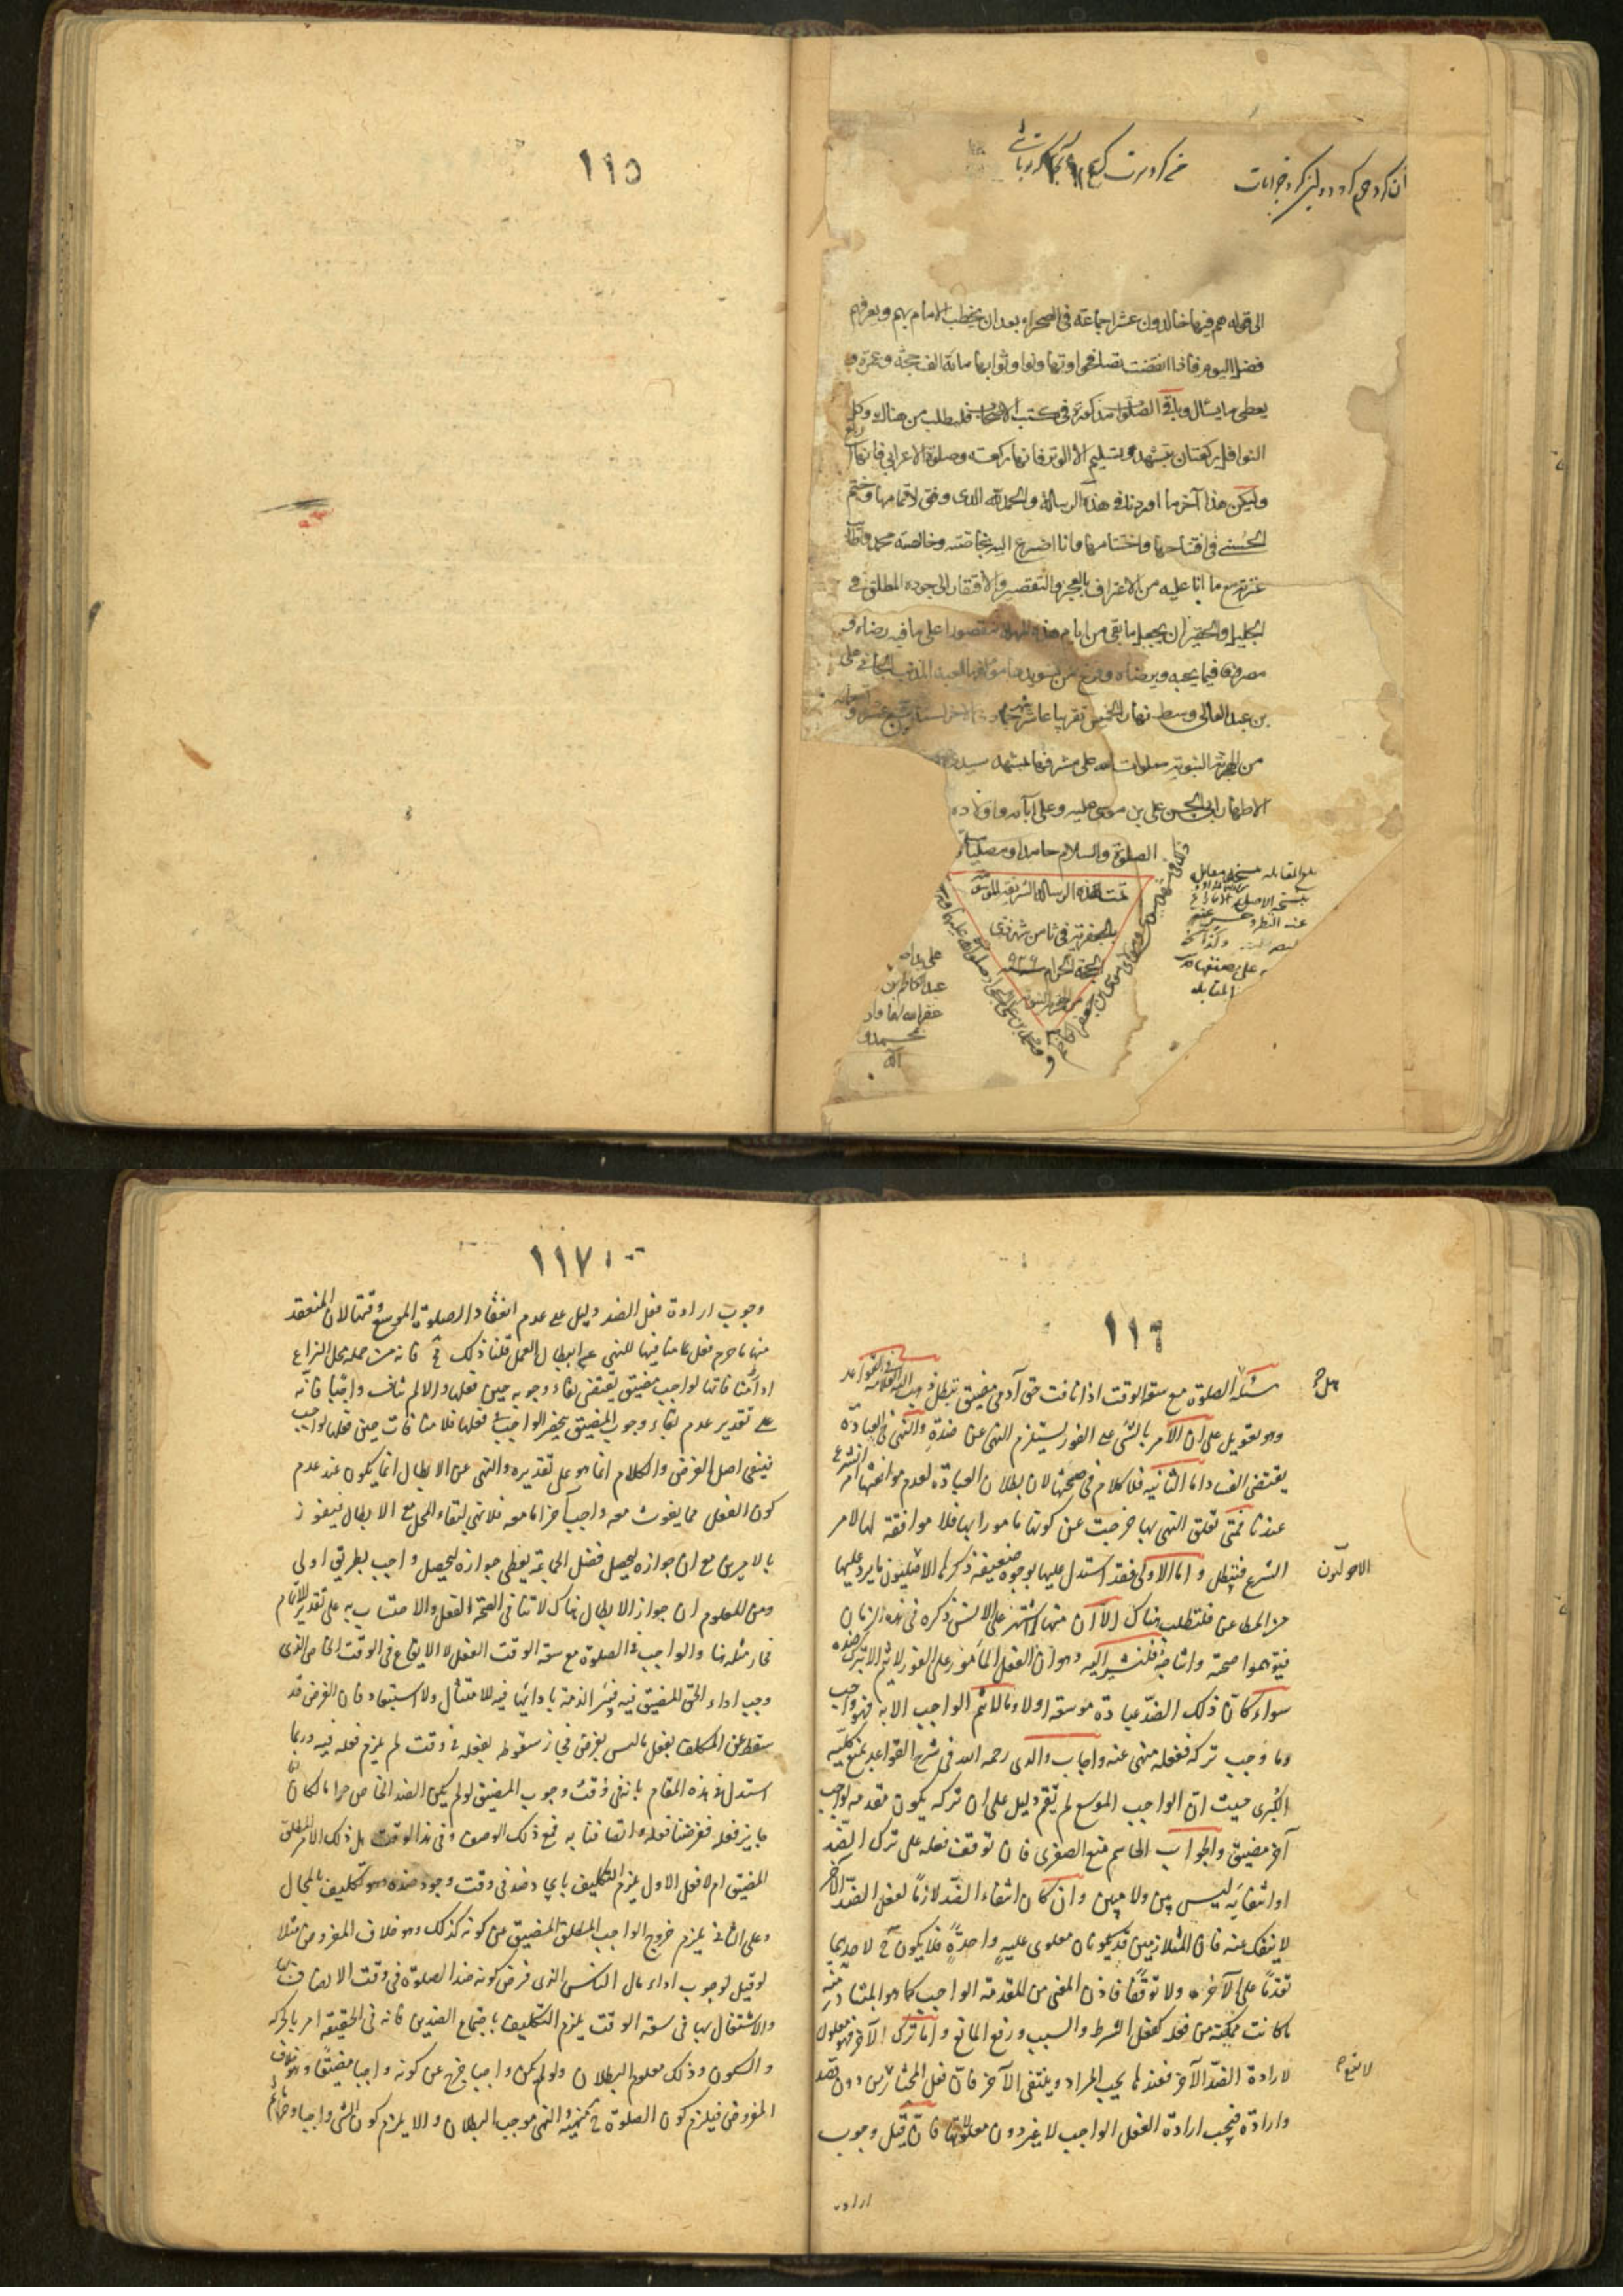 الى قوله هم فيها خالدون عشرا جماعة فى الصحراء بعد ان يخطب الامام بهم ويعرفهم
فضل اليوم فاذا انقضت تصافحوا وتهانوا وثوابها مائة الف حجة وعمرة و
يعطى ما يسأل وباقى الصلوات مذكورة فى كتب الاصحاب فليطلب من هناك وكل
النوافل ركعتان بتشهد وتسليم الا الوتر فانها ركعة وصلوة الاعرابى فانها
وليكن هذا آخر ما اوردنه فى هذه الرسالة والحمد لله الذى وفق لاتمامها وختم
الحسنى فى افتتاحها واختتامها وانا اضرع اليه بخاصته وخالصته محمد واطائب
عترته مع ما انا عليه من الاعتراف بالعجز والتقصير والافتقار الى جوده المطلق فى
الجليل والحقير ان يجعل ما بقى من ايام هذه المهلة مقصورا على ما فيه رضاه و
مصروفا فيما يحبه ويرضاه وفرغ من تسويدها مؤلفها العبد المذنب الجانى على
بن عبد العالى وسط نهار الخميس تقريبا عاشر جمادى الاخر سنة سبع عشر و
من الهجرة النبوية صلوات الله على مشرفها بمشهد سيد
الاطهار ابى الحسن على بن موسى عليه وعلى آبائه واولاده
الصلوة والسلام حامدا ومصليا
تمت هذه الرسالة الشريفة الموسومة
بالجعفرية فى ثامن شهر ذى
الحجة الحرام سنة ٩٢٦
من الهجرة النبوية
بلغ المقابلة
على صنفها
المقابلة
غفر الله لهما
بمحمد و
آله
١١٥
١١٦
مسئلة الصلوة مع سعة الوقت اذا نافت حق آدمى مضيق تبطل ذهب اليه العلامة فى القواعد
وهو تعويل على ان الامر بالشئ على الفور يستلزم النهى عن ضده والنهى فى العبادة
يقتضى الفساد اما الثانية فلا كلام فى صحتها لان بطلان العبادة لعدم موافقتها امر الشرع
عندنا فمتى تعلق النهى بها خرجت عن كونها مأمورا بها فلا موافقة لها لامر
الشرع فتبطل واما الاولى فقد استدل عليها بوجوه ضعيفة ذكرها الاصوليون ما يرد عليها
الاصوليون
من المطاعن فلتطلب هناك الا ان منها ما اشتهر على الالسن ذكره فى هذه الزمان
فيتوهموا صحته وانتاجه فلنشير اليه وهو ان الفعل المأمور على الفور لا يتم الا بترك ضده
سواء كان ذلك الضد عبادة موسعة او لا وما لا يتم الواجب الا به فهو واجب
وما وجب تركه ففعله منهى عنه واجاب والدى رحمه الله فى شرح القواعد بمنع كلية
الكبرى حيث ان الواجب الموسع لم يقم دليل على ان تركه يكون مقدمة لواجب
آخر مضيق والجواب الحاسم منع الصغرى فان توقف فعله على ترك الضد
او انتفائه ليس بين ولا مبين وان كان انتفاء الضد لازما لفعل الضد الآخر
لا ينفك عنه فان المتلازمين قد يكونان معلولى علية واحدة فلا يكون ح لاحدهما
تقدما على الآخر ولا توقفا فاذن المغنى من المقدمة الواجب كما هو المتبادر منه
ما كانت ممكنة من فعله كفعل الشرط والسبب ورفع المانع واما ترك الآخر فهو معلول
لارادة الضد الآخر فعندها يجب المراد وينتفى الآخر فان فعل المختار من دون قصد
وارادة فيجب ارادة الفعل الواجب لا غير دون معلولها فان قيل وجوب
ارادة
١١٧
وجوب ارادة فعل الضد دليل على عدم انعقاد الصلوة الموسع وقتها لان المنعقد
منها ما حرم فعل ما ينافيها للنهى عن ابطال العمل قلنا ذلك ح فانه من جملة محل النزاع
اذ امتنافاتها لواجب مضيق يقتضى بقاء وجوبه حين فعلها والا لم تناف واجبا فانه
على تقدير عدم بقاء وجوب المضيق بحضر الواجب فى فعلها فلا منافات حين فعلها لواجب
فينتفى اصل الفرض والكلام انما هو على تقديره والنهى عن الابطال انما يكون عند عدم
كون الفعل مما يفوت معه واجب آخر اما معه فلا نهى لبقاء المحل مع الابطال فيفوز
بالامرين مع ان جوازه ليحصل فضل الجماعة يعطى جوازه ليحصل واجب بطريق اولى
ومن المعلوم ان جواز الابطال هناك لا تنافى الصحة الفعل والاحتساب به على تقدير الاتمام
فجاز مثله هنا والواجب فى الصلوة مع سعة الوقت الفعل لا الايقاع فى الوقت الخاص الذى
وجب اداء الحق المضيق فيه فتبرء الذمة بادائها فيه للامتثال ولا استبعاد فان الفرض قد
سقط عن المكلف بفعل ما ليس بفرض فجاز سقوطه بفعله فى وقت لم يلزم فعله فيه وربما
استدل فى هذه المقام بانه فى وقت وجوب المضيق لو لم يكن الضد الخاص حراما لكان
جايز فعله ففرضنا فعله واتصافنا به فمع ذلك الوصف وفى هذا الوقت هل ذلك الامر المطلق
المضيق ام لا فعلى الاول يلزم التكليف بايجاد ضد فى وقت وجود ضده وهو تكليف بالمحال
وعلى الثانى يلزم خروج الواجب المطلق المضيق عن كونه كذلك وهو خلاف المفروض مثلا
لو قيل لوجوب اداء مال الناس الذى فرض كونه ضد الصلوة فى وقت الاتصاف بها
والاشتغال بها فى سعة الوقت يلزم التكليف باجتماع الضدين فانه فى الحقيقة امر بالحركة
والسكون وذلك معلوم البطلان ولو لم يكن واجبا خرج عن كونه واجبا مضيقا وهو خلاف
المفروض فيلزم كون الصلوة ح منهية النهى موجب البطلان والا يلزم كون الشئ واجبا وحراما